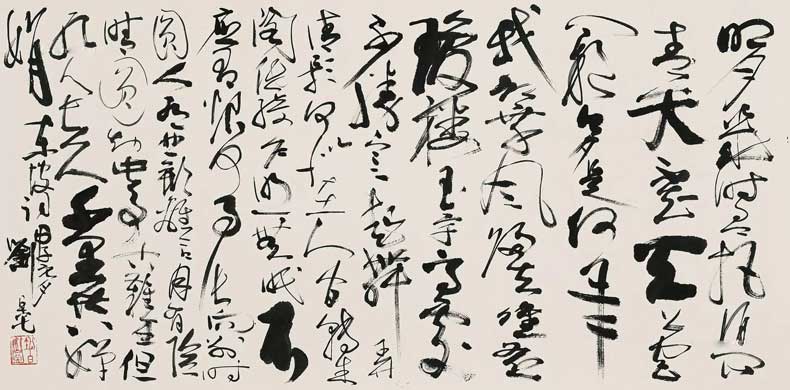 明月幾時有把酒問
青天不知天上宮
闕今夕是何年
我欲乘風歸去唯恐
瓊樓玉宇高處
不勝寒起舞弄
清影何似在人間轉朱
閣低綺戶照無眠不
應有恨何事長向別時
圓人有悲歡離合月有陰
晴圓缺此事古難全但
願人長久千里共嬋
娟 東坡詞
劉